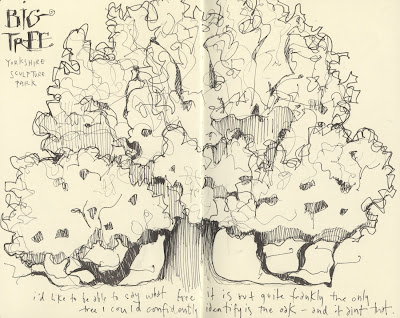 BIG
TREE
YORKSHIRE
SCULPTURE
PARK
i'd like to be able to say what tree it is but quite frankly the only
tree i could confidently identify is the oak - and it aint that.